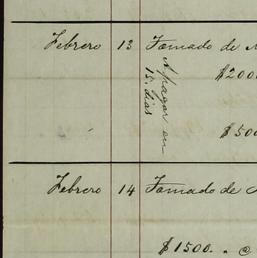 Febrero 13 Tomado de
A pagar en
15. dias
$200
$500
Febrero 14 Tomado de
$1500. " @